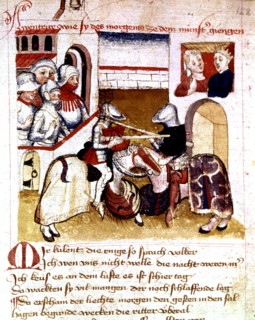 wie sy des morgens zu dem munster giengen
Mir kulent die ringe so sprach volker
Ich wen uns nicht welle die nacht weren m
Ich keus es an dem lufte es ist schier tag
Do wackten sy vil mangen der noch schlaffende lag
Do erscham der liechte morgen den gesten in den sal
hagen begunde wecken die ritter uberal